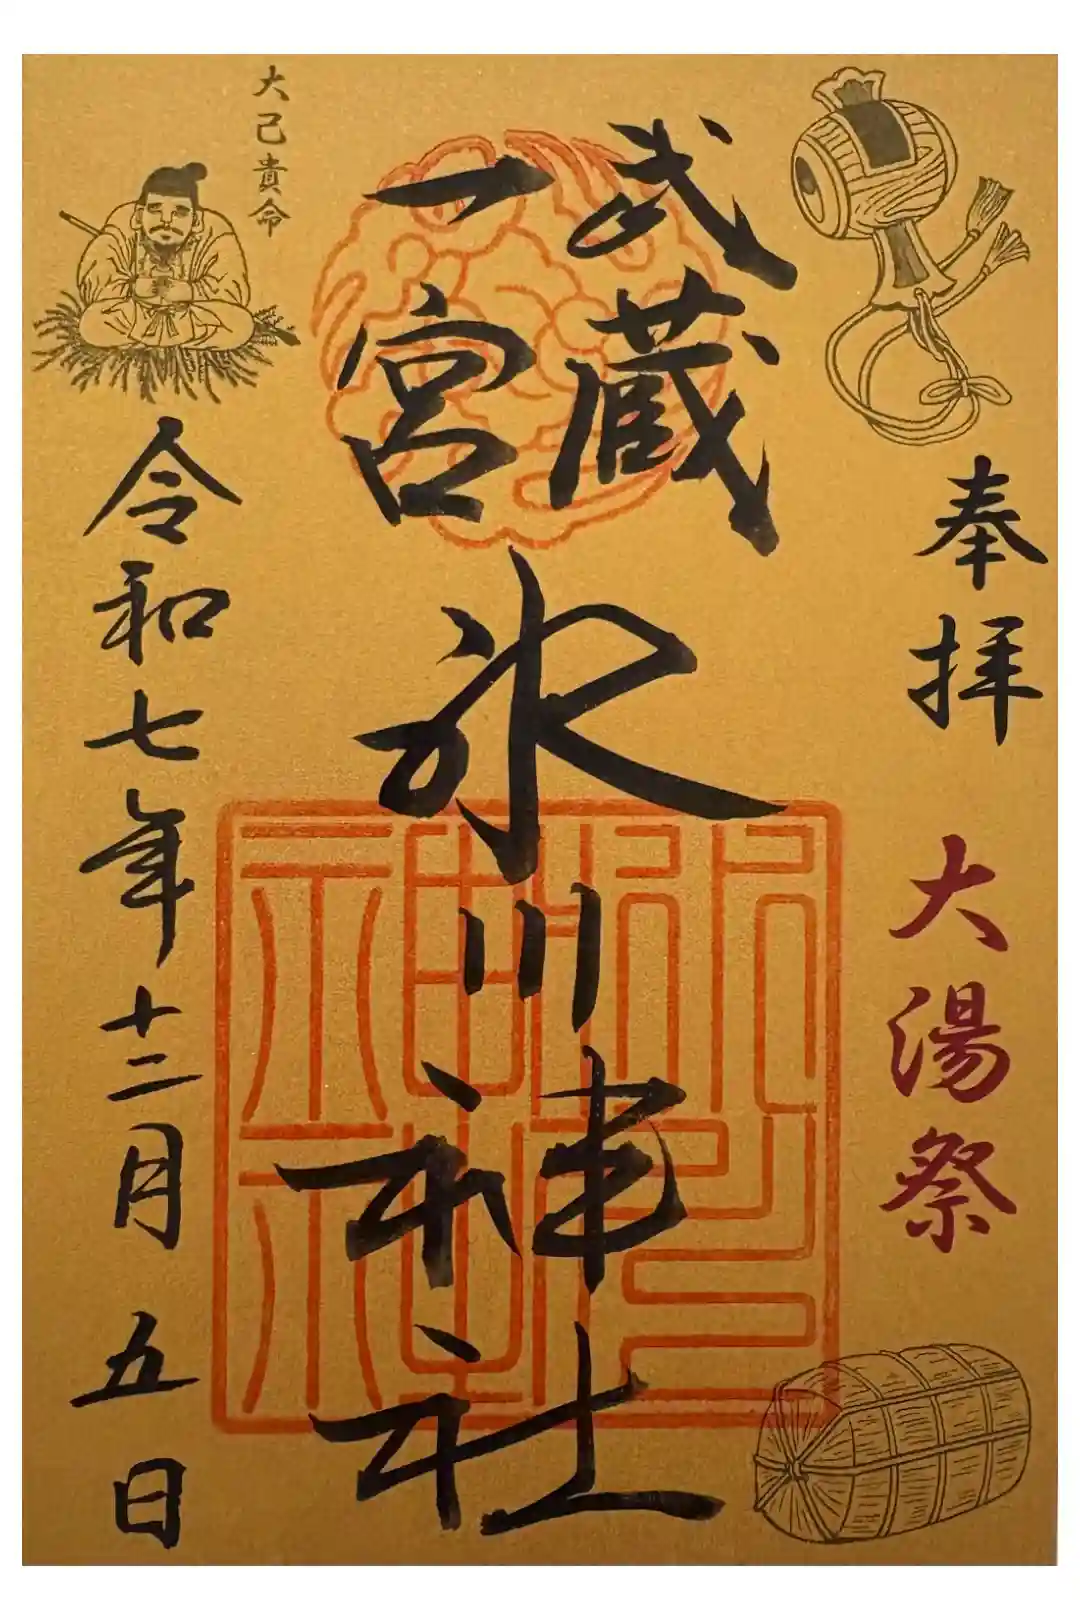 奉拝
大湯祭
武蔵
一宮
氷川神社
氷川神社
大己貴命
令和七年十二月五日